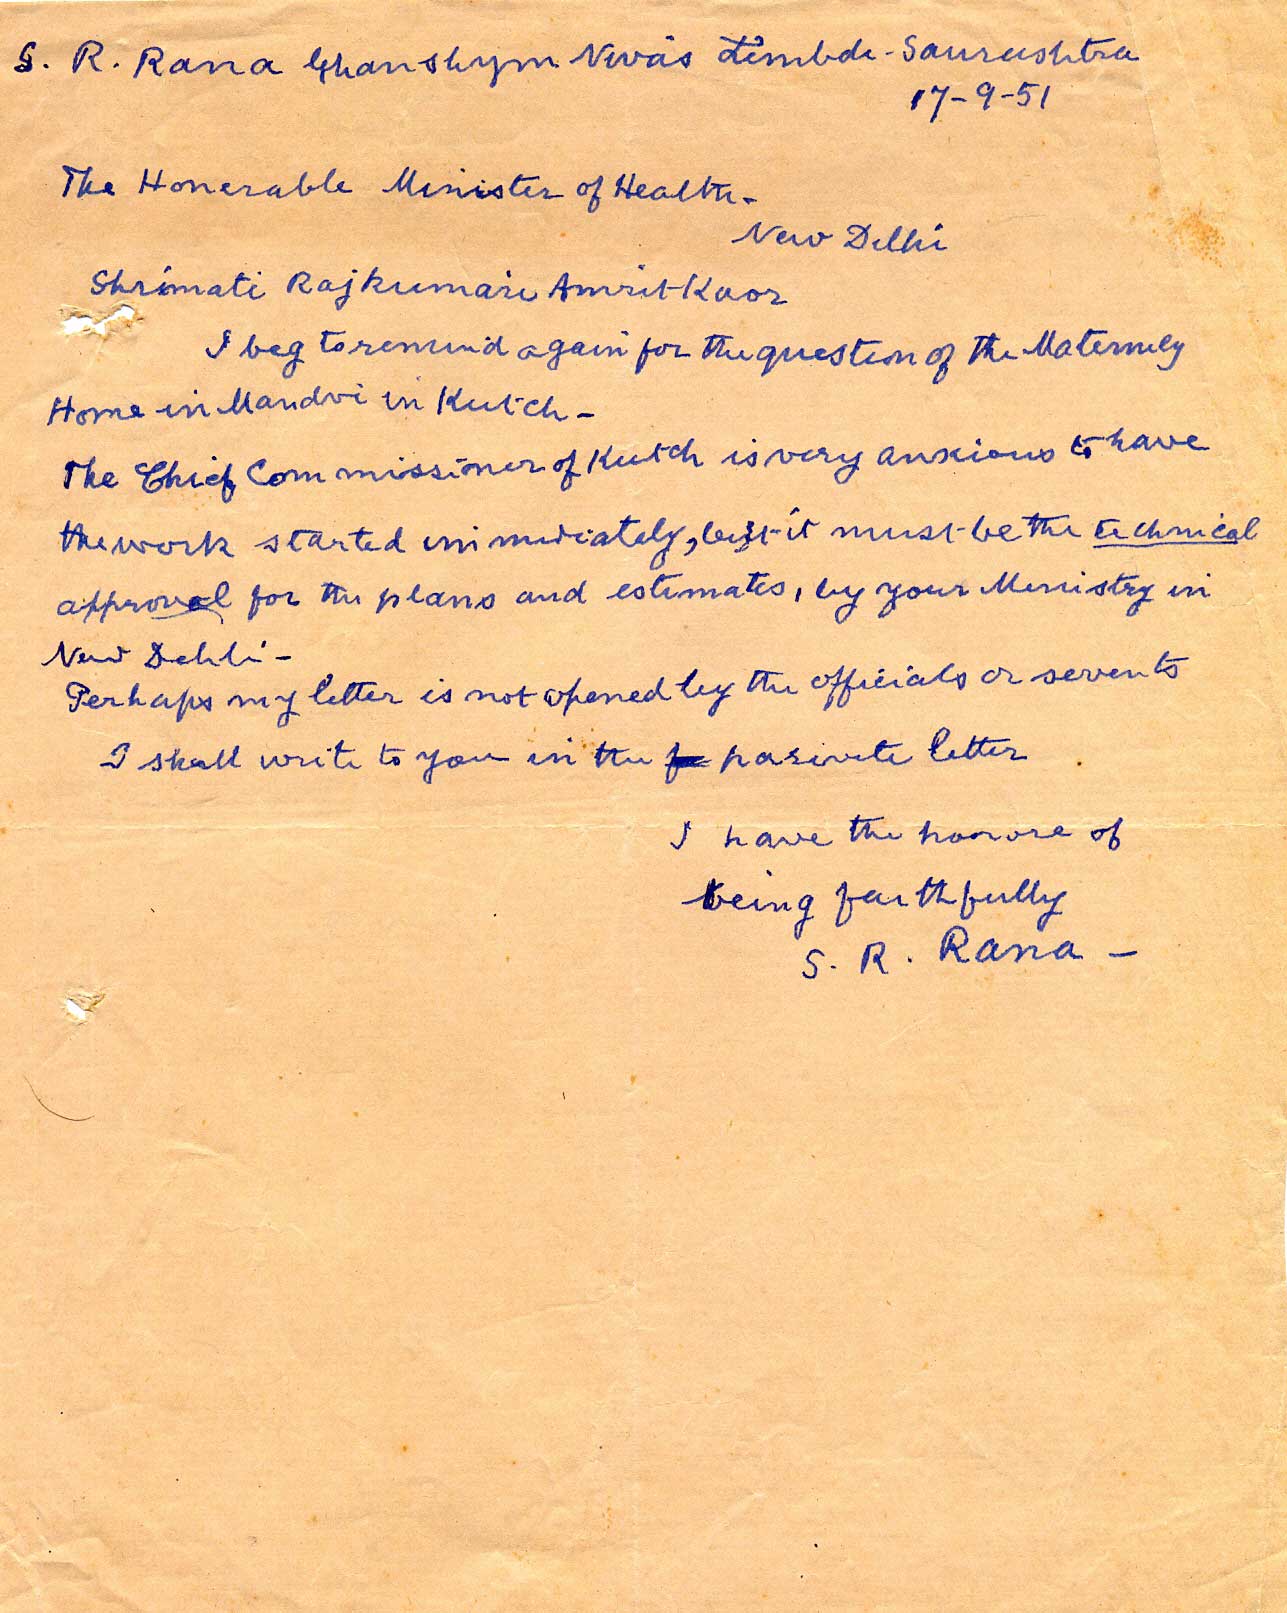 S. R. Rana Ghanshym Nivas Limbdi - Saurashtra
17-9-51
The Honerable Minister of Health -
New Delhi
Shrimati Rajkumari Amrit Kaor
I beg to remind again for the question of the Maternity
Home in Mandvi in Kutch -
The Chief Commissioner of Kutch is very anxious to have
the work started immediately, but it must be the technical
approval for the plans and estimates, by your Ministry in
New Dehli -
Perhaps my letter is not opened by the officials or servents
I shall write to you in the parivete letter
I have the honore of
being faithfully
S. R. Rana -